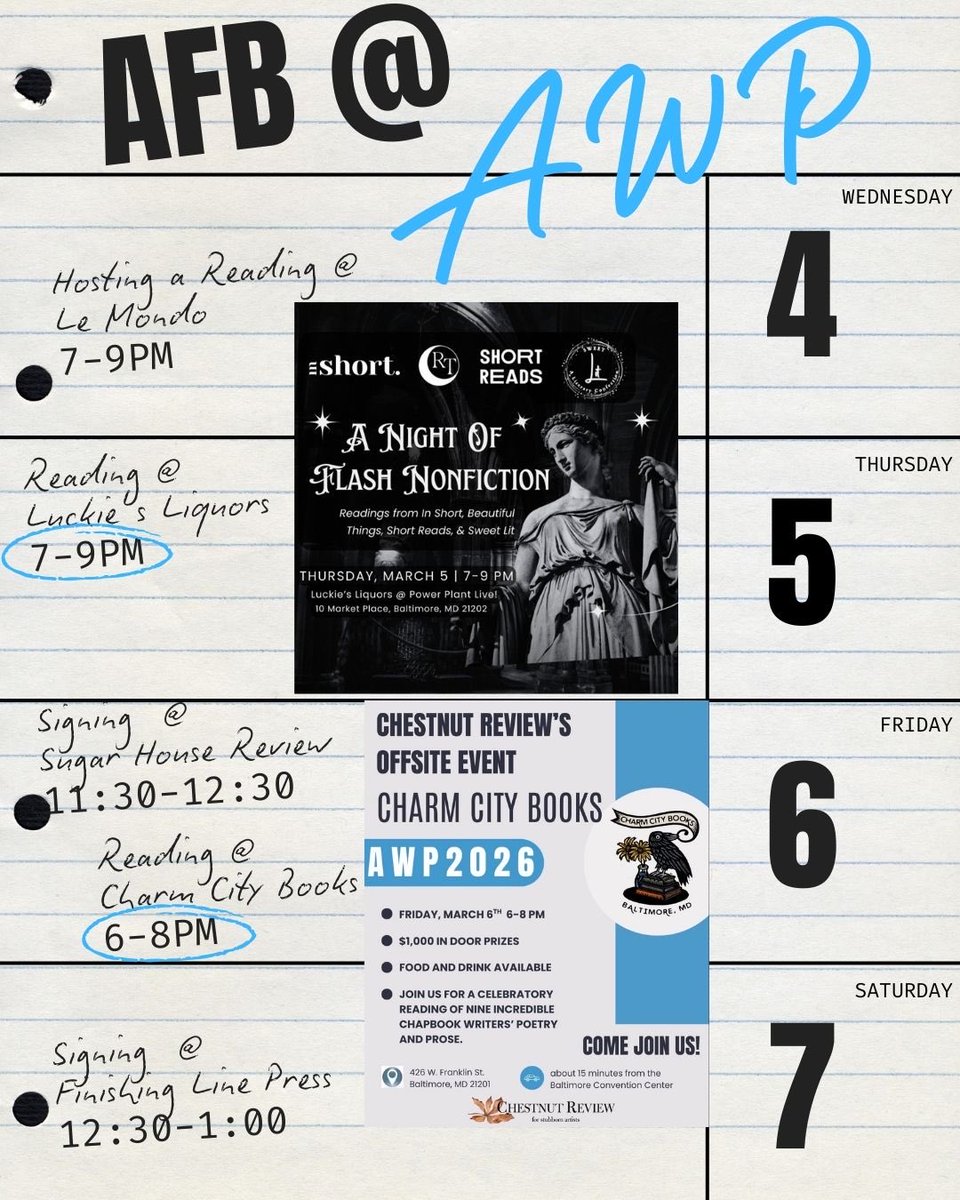 AFB @
AWP
WEDNESDAY
4
Hosting a Reading @
Le Mondo
7-9PM
THURSDAY
5
Reading @
Luckie's Liquors
7-9PM
IN short.
RT
SHORT
READS
SWEET
Lit
A NIGHT OF
FLASH NONFICTION
Readings from In Short, Beautiful
Things, Short Reads, & Sweet Lit
THURSDAY, MARCH 5 | 7-9 PM
Luckie's Liquors @ Power Plant Live!
10 Market Place, Baltimore, MD 21202
FRIDAY
6
Signing @
Sugar House Review
11:30-12:30
Reading @
Charm City Books
6-8PM
CHESTNUT REVIEW'S
OFFSITE EVENT
CHARM CITY BOOKS
AWP2026
CHARM CITY BOOKS
BALTIMORE, MD
FRIDAY, MARCH 6TH 6-8 PM
$1,000 IN DOOR PRIZES
FOOD AND DRINK AVAILABLE
JOIN US FOR A CELEBRATORY
READING OF NINE INCREDIBLE
CHAPBOOK WRITERS' POETRY
AND PROSE.
COME JOIN US!
426 W. Franklin St.
Baltimore, MD 21201
about 15 minutes from the
Baltimore Convention Center
CHESTNUT REVIEW
for stubborn artists
SATURDAY
7
Signing @
Finishing Line Press
12:30-1:00